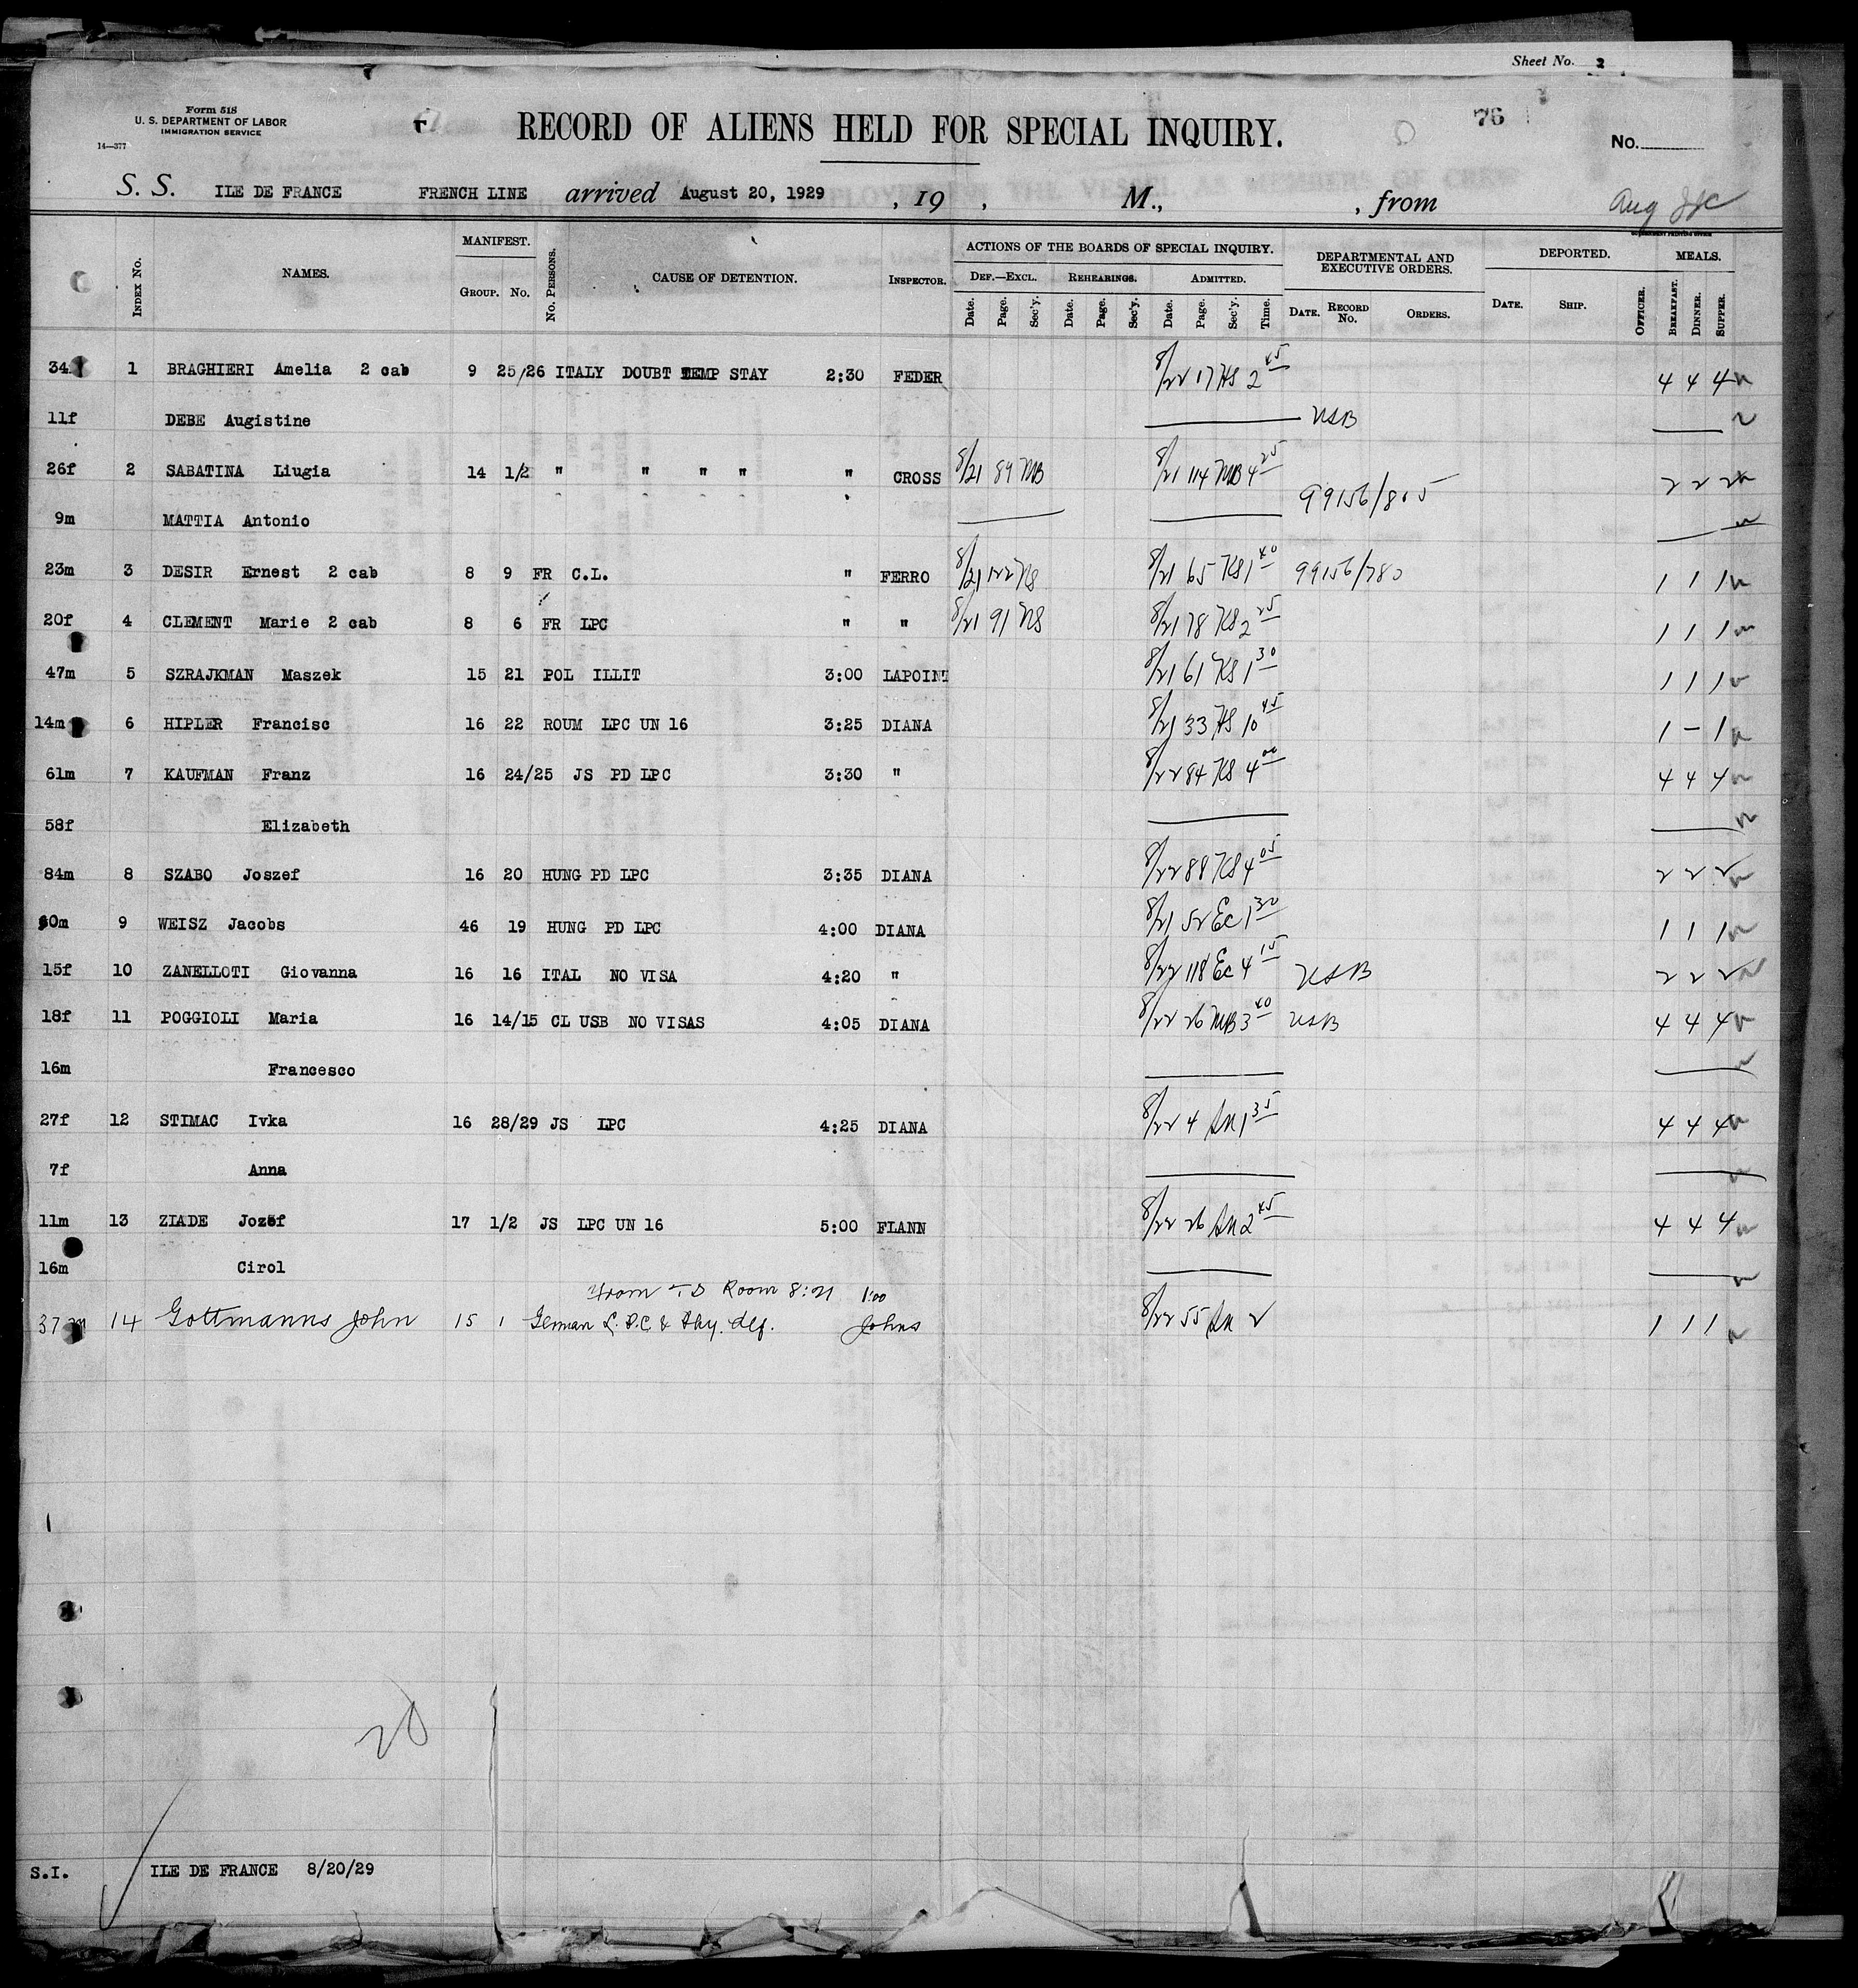 Sheet No. 2
Form 518
U. S. DEPARTMENT OF LABOR
IMMIGRATION SERVICE
14—377
RECORD OF ALIENS HELD FOR SPECIAL INQUIRY.
76
No.
S. S. ILE DE FRANCE FRENCH LINE arrived August 20, 1929 , 19 , M., , from
Aug
GOVERNMENT PRINTING OFFICE
INDEX No. NAMES. MANIFEST. GROUP. No. No. PERSONS. CAUSE OF DETENTION. INSPECTOR. ACTIONS OF THE BOARDS OF SPECIAL INQUIRY. DEF.—EXCL. REHEARINGS. ADMITTED. DEPARTMENTAL AND EXECUTIVE ORDERS. DEPORTED. MEALS.
Date. Page. Sec'y. Date. Page. Sec'y. Date. Page. Sec'y. Time. DATE. RECORD No. ORDERS. DATE. SHIP. OFFICER. BREAKFAST. DINNER. SUPPER.
34 1 BRAGHIERI Amelia 2 cab 9 25/26 ITALY DOUBT TEMP STAY 2:30 FEDER 8/22 17 HS 2 45 4 4 4
11f DEBE Augistine USB
26f 2 SABATINA Liugia 14 1/2 " " " " " CROSS 8/21 89 MB 8/21 114 MB 4 25 99156/805 2 2 2
9m MATTIA Antonio
23m 3 DESIR Ernest 2 cab 8 9 FR C.L. " FERRO 8/21 122 KS 8/21 65 KS 1 40 99156/780 1 1 1
20f 4 CLEMENT Marie 2 cab 8 6 FR LPC " " 8/21 91 KS 8/21 78 KS 2 25 1 1 1
47m 5 SZRAJKMAN Maszek 15 21 POL ILLIT 3:00 LAPOINT 8/21 61 KS 1 30 1 1 1
14m 6 HIPLER Francisc 16 22 ROUM LPC UN 16 3:25 DIANA 8/21 33 HS 10 45 1 – 1
61m 7 KAUFMAN Franz 16 24/25 JS PD LPC 3:30 " 8/22 84 KS 4 00 4 4 4
58f Elizabeth
84m 8 SZABO Joszef 16 20 HUNG PD LPC 3:35 DIANA 8/22 88 KS 4 05 2 2 2
60m 9 WEISZ Jacobs 46 19 HUNG PD LPC 4:00 DIANA 8/21 52 Ec 1 30 1 1 1
15f 10 ZANELLOTI Giovanna 16 16 ITAL NO VISA 4:20 " 8/22 118 Ec 4 15 USB 2 2 2
18f 11 POGGIOLI Maria 16 14/15 CL USB NO VISAS 4:05 DIANA 8/22 26 MB 3 40 USB 4 4 4
16m Francesco
27f 12 STIMAC Ivka 16 28/29 JS LPC 4:25 DIANA 8/22 4 1 35 4 4 4
7f Anna
11m 13 ZIADE Jozef 17 1/2 JS LPC UN 16 5:00 FLANN 8/22 26 2 45 4 4 4
16m Cirol
From T.D Room 8:21 1:00
37m 14 Gottmanns John 15 1 German L.P.C. & Phy. def. Johns 8/22 55 2 1 1 1
20
S.I. ILE DE FRANCE 8/20/29